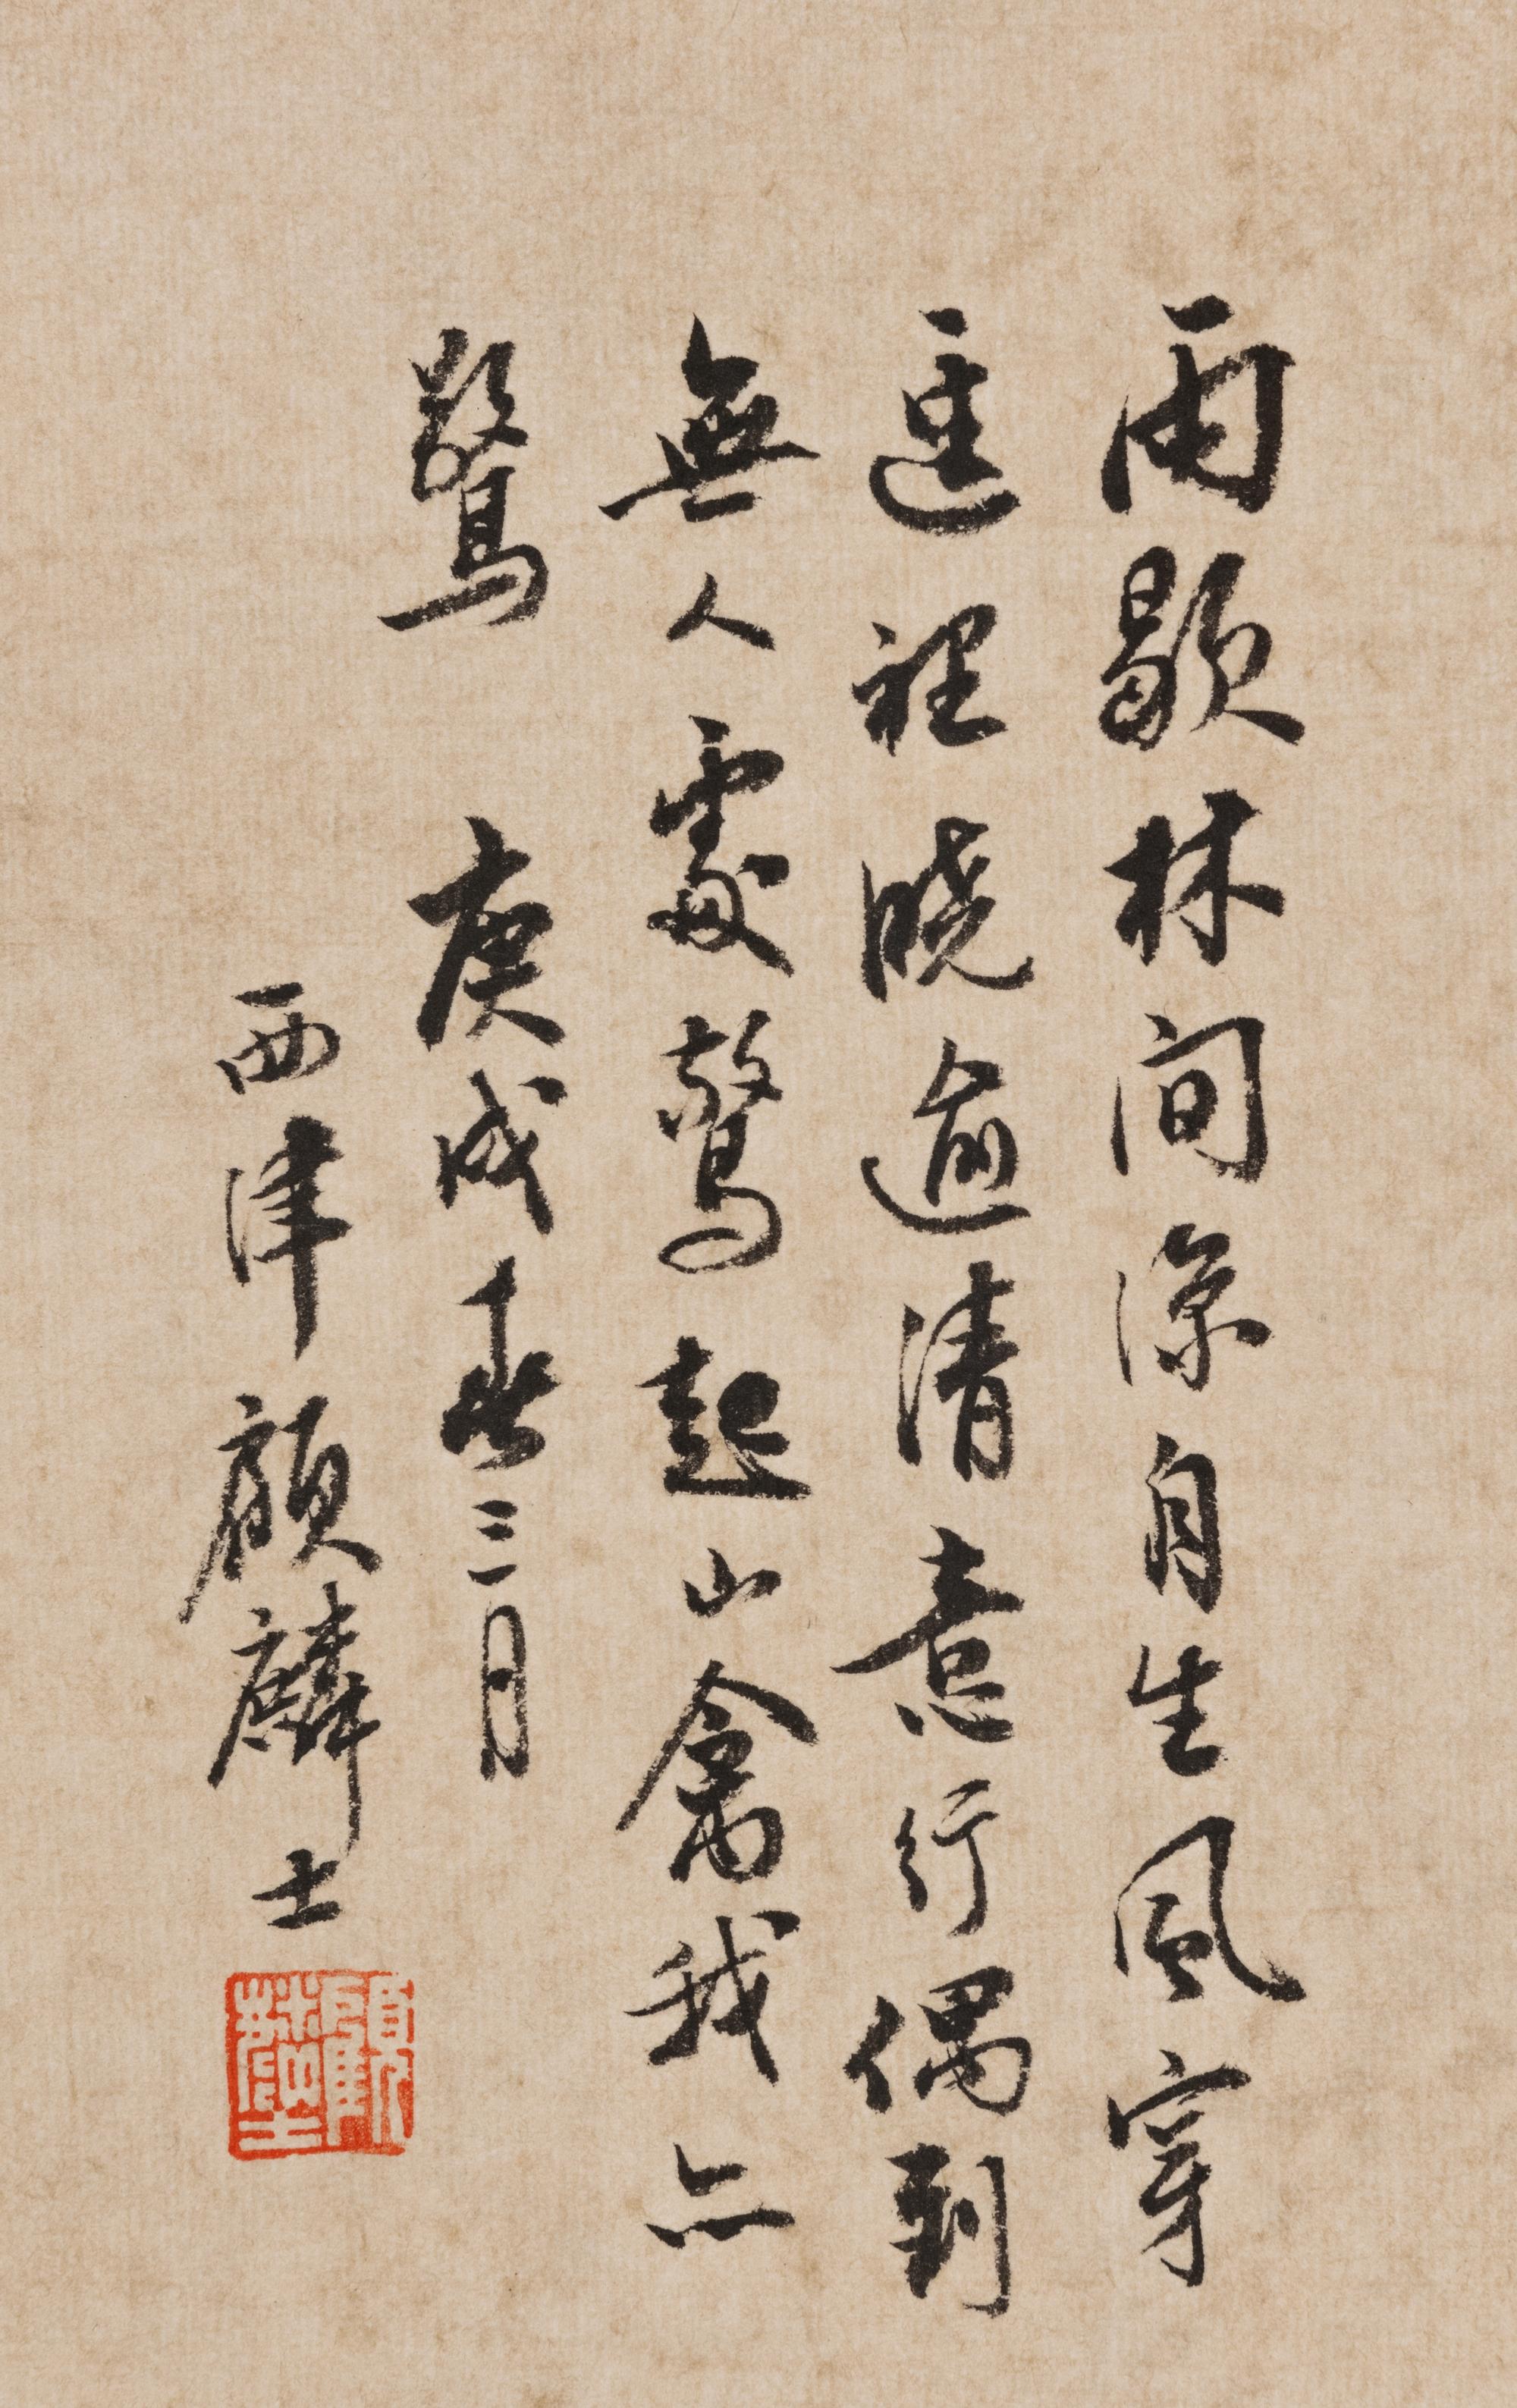 雨歇林間涼自生風穿
逕裡曉逾清意行偶到
無人處驚起山禽我亦
驚 庚戌春三月
西津顧麟士
顧麟士